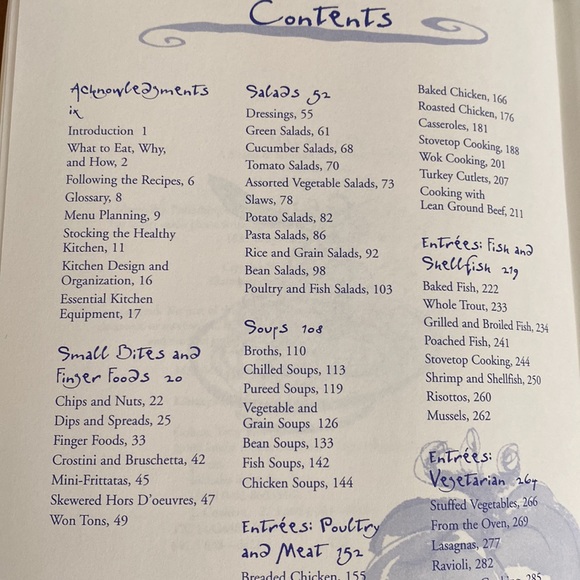 Contents
Acknowledgments
ix
Introduction 1
What to Eat, Why,
and How, 2
Following the Recipes, 6
Glossary, 8
Menu Planning, 9
Stocking the Healthy
Kitchen, 11
Kitchen Design and
Organization, 16
Essential Kitchen
Equipment, 17
Small Bites and
Finger Foods 20
Chips and Nuts, 22
Dips and Spreads, 25
Finger Foods, 33
Crostini and Bruschetta, 42
Mini-Frittatas, 45
Skewered Hors D'oeuvres, 47
Won Tons, 49
Salads 52
Dressings, 55
Green Salads, 61
Cucumber Salads, 68
Tomato Salads, 70
Assorted Vegetable Salads, 73
Slaws, 78
Potato Salads, 82
Pasta Salads, 86
Rice and Grain Salads, 92
Bean Salads, 98
Poultry and Fish Salads, 103
Soups 108
Broths, 110
Chilled Soups, 113
Pureed Soups, 119
Vegetable and
Grain Soups 126
Bean Soups, 133
Fish Soups, 142
Chicken Soups, 144
Entrées: Poultry
and Meat 152
Breaded Chicken, 155
Baked Chicken, 166
Roasted Chicken, 176
Casseroles, 181
Stovetop Cooking, 188
Wok Cooking, 201
Turkey Cutlets, 207
Cooking with
Lean Ground Beef, 211
Entrées: Fish and
Shellfish 219
Baked Fish, 222
Whole Trout, 233
Grilled and Broiled Fish, 234
Poached Fish, 241
Stovetop Cooking, 244
Shrimp and Shellfish, 250
Risottos, 260
Mussels, 262
Entrées:
Vegetarian 264
Stuffed Vegetables, 266
From the Oven, 269
Lasagnas, 277
Ravioli, 282
285